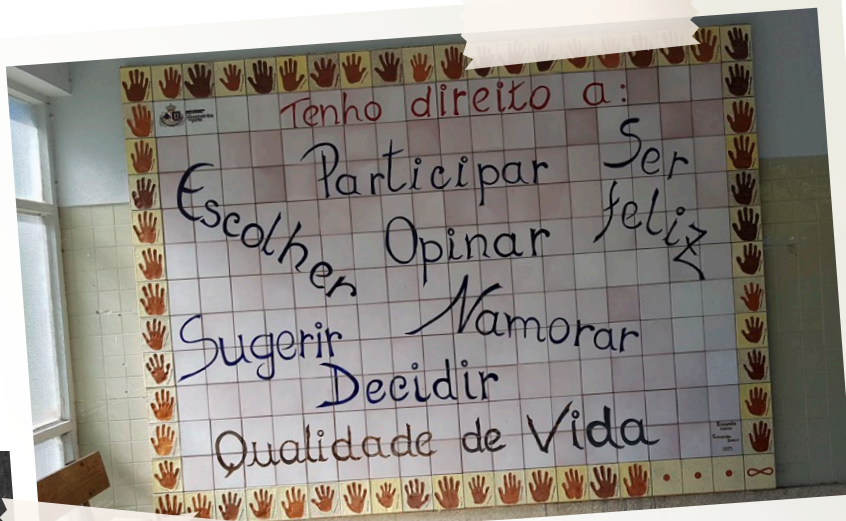 Tenho direito a:
Participar
Ser feliz
Escolher
Opinar
Namorar
Sugerir
Decidir
Qualidade de Vida